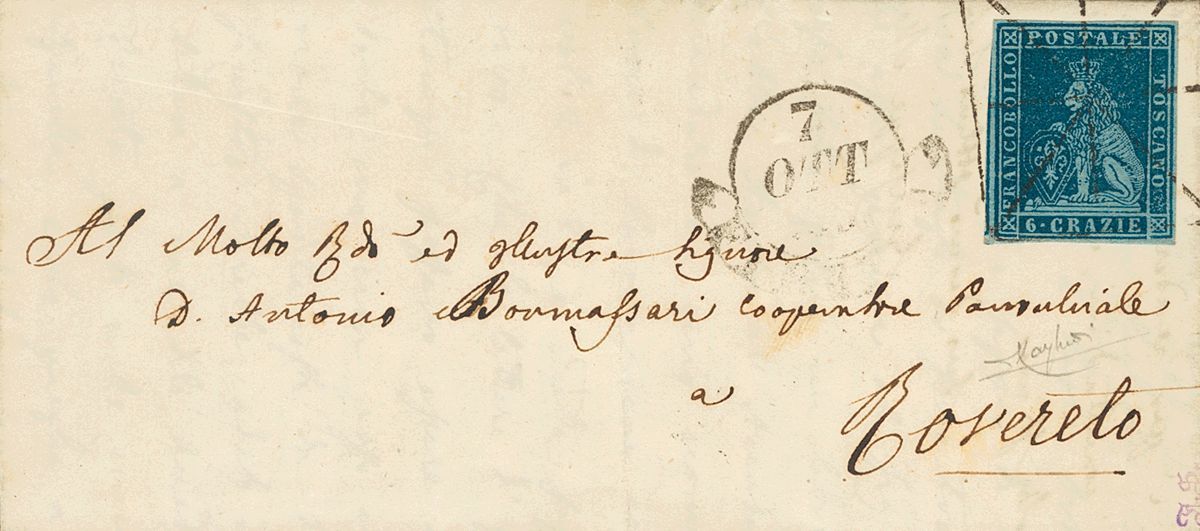 FRANCOBOLLO POSTALE TOSCANO
6 · CRAZIE
7
OTT
Al Molto Rdo ed Illustre Signore
D. Antonio Bonmassari cooperatore Parochiale
a
Rovereto